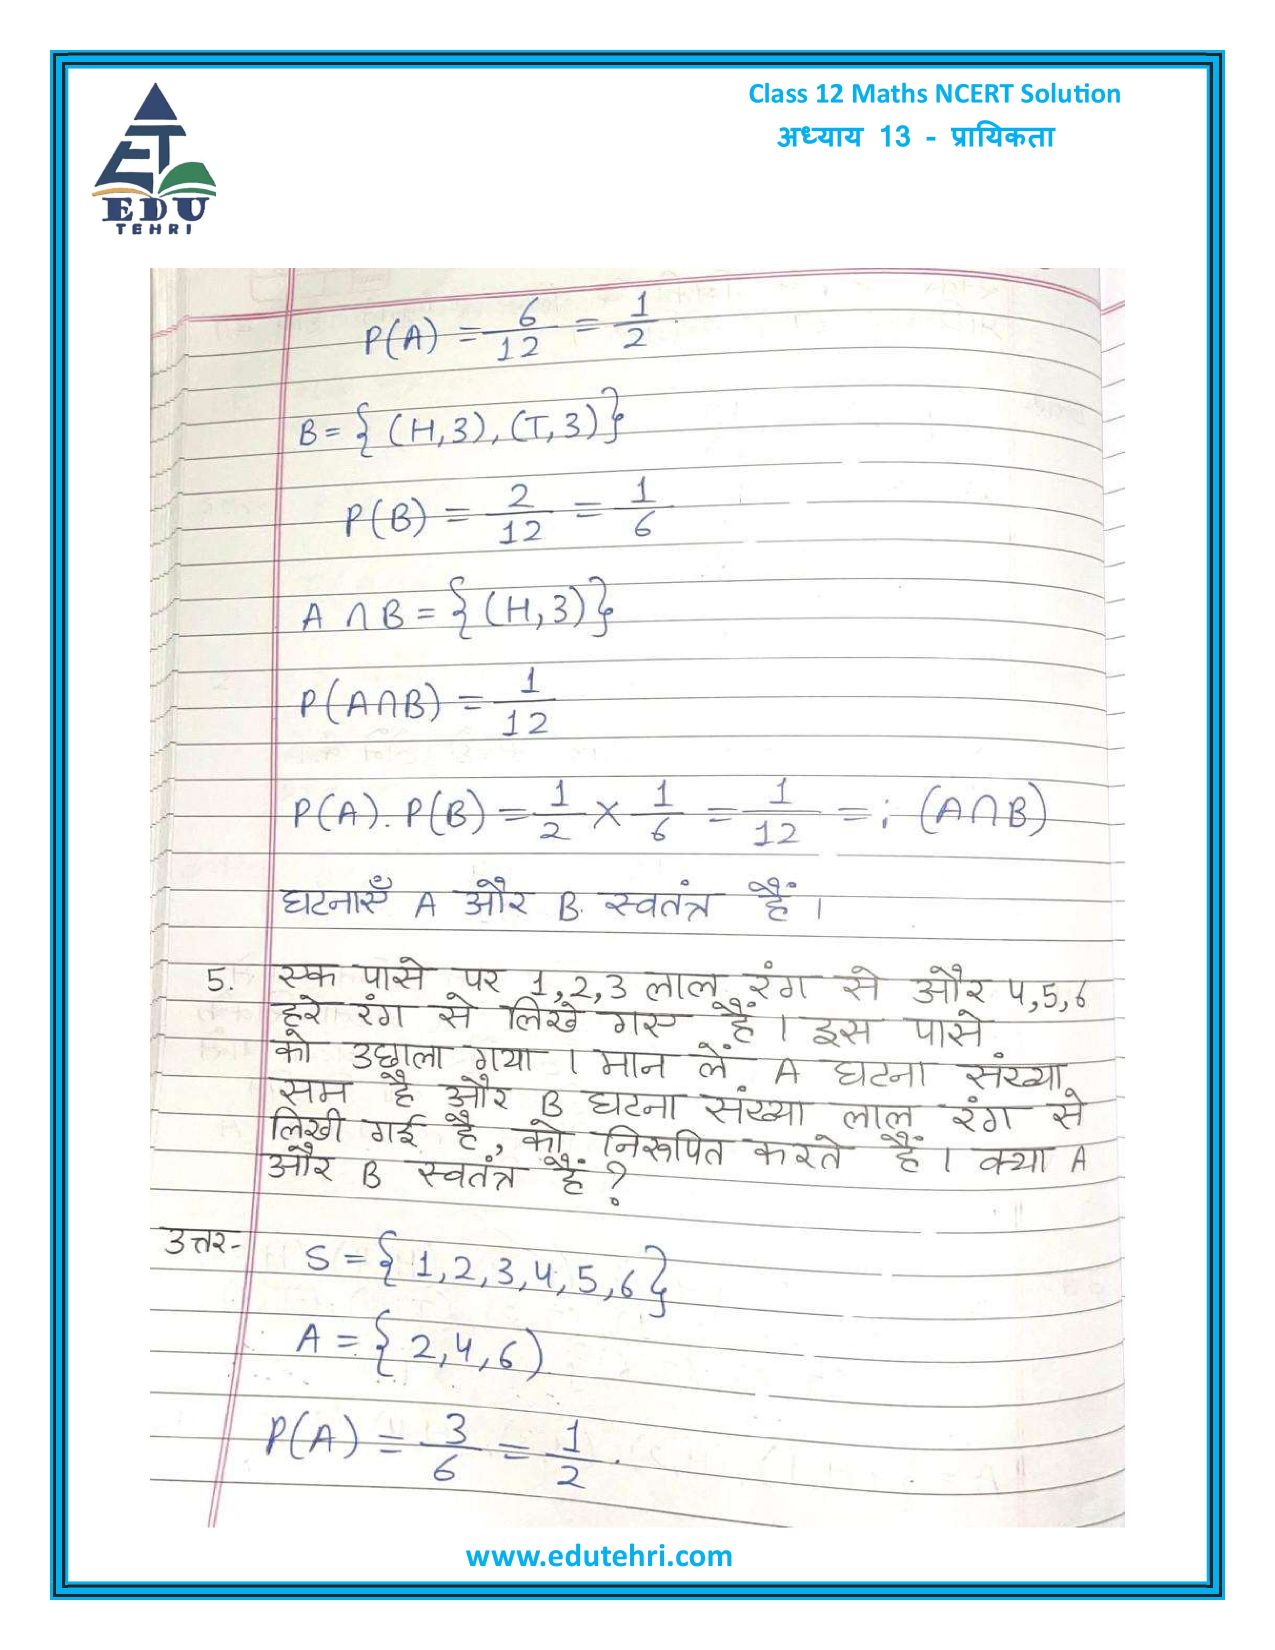 Class 12 Maths NCERT Solution
अध्याय 13 - प्रायिकता
EDU
TEHRI
P(A) = 6/12 = 1/2
B = { (H,3), (T,3)}
P(B) = 2/12 = 1/6
A ∩ B = { (H,3)}
P(A∩B) = 1/12
P(A). P(B) = 1/2 × 1/6 = 1/12 = ; (A∩B)
घटनाएँ A और B स्वतंत्र हैं।
5. एक पासे पर 1,2,3 लाल रंग से और 4,5,6
हरे रंग से लिखे गए हैं। इस पासे
को उछाला गया। मान लें A घटना संख्या
सम है और B घटना संख्या लाल रंग से
लिखी गई है, को निरूपित करते हैं। क्या A
और B स्वतंत्र हैं?
उत्तर- S = {1,2,3,4,5,6}
A = { 2,4,6)
P(A) = 3/6 = 1/2.
www.edutehri.com